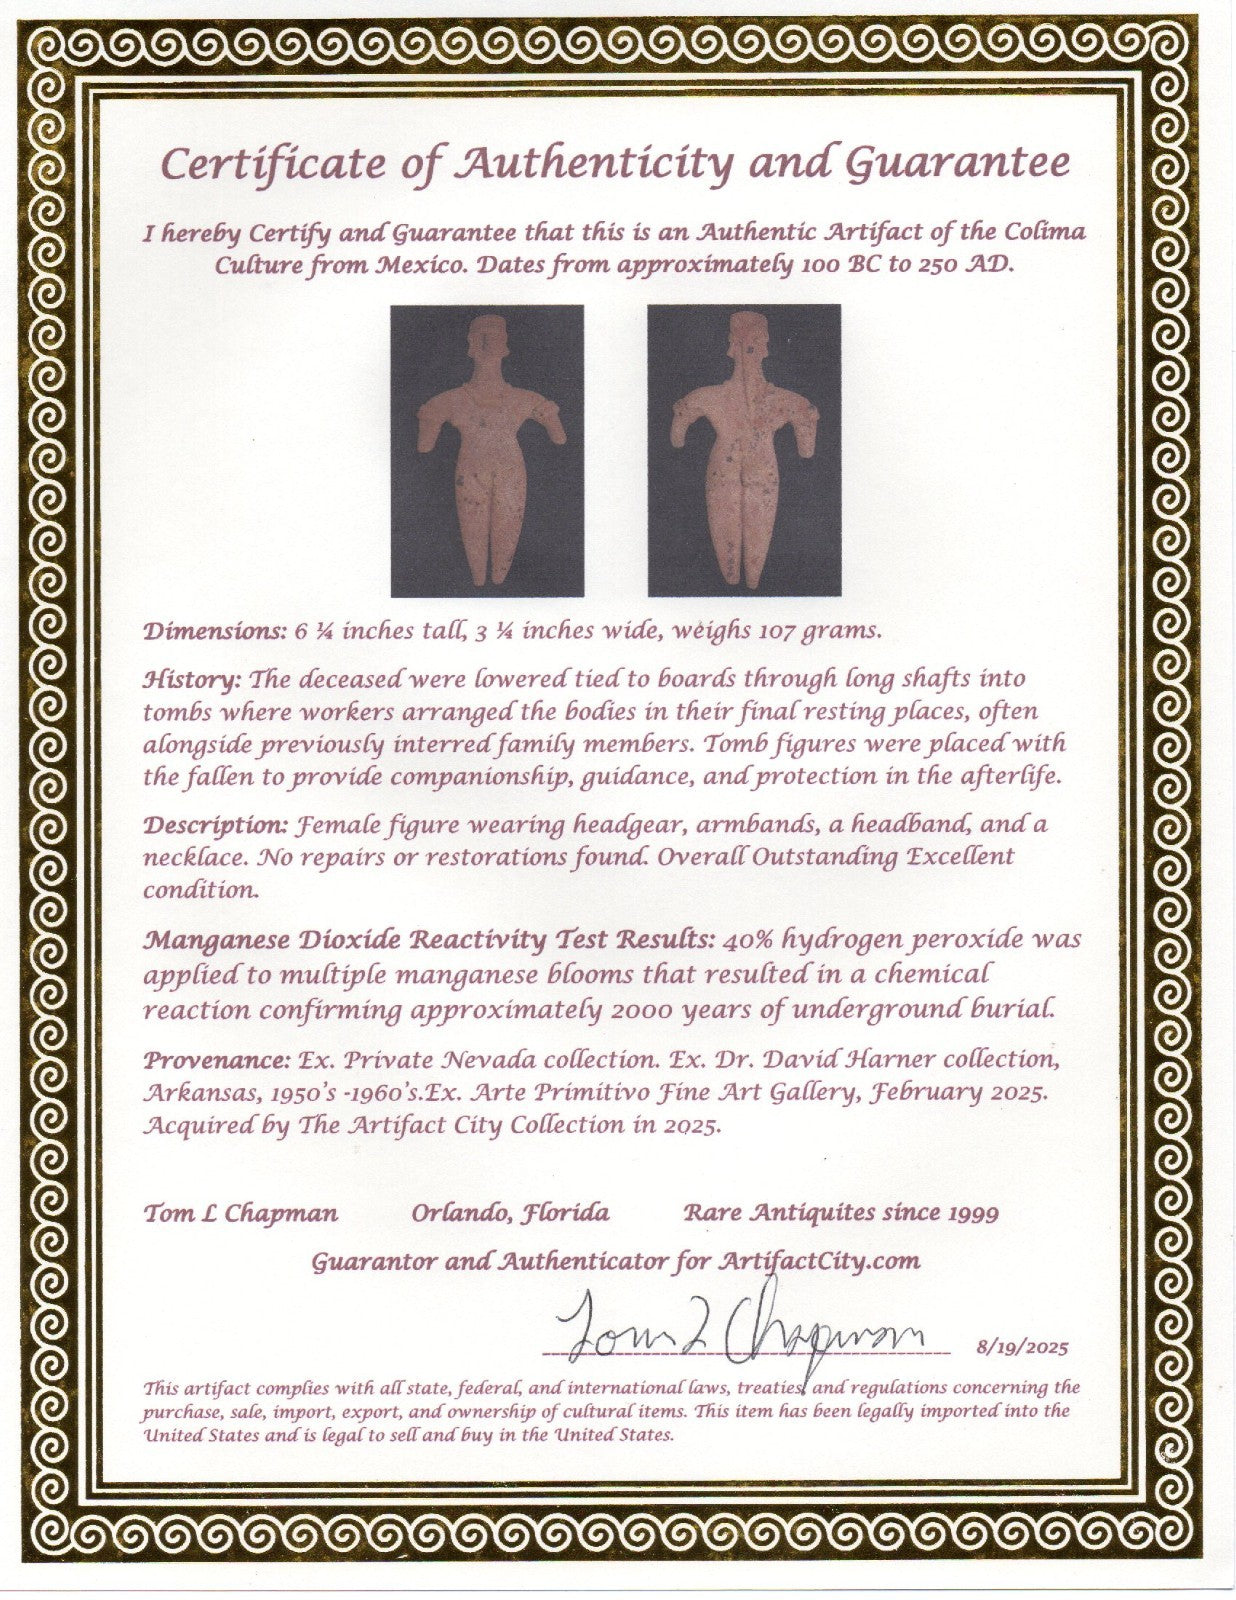 Certificate of Authenticity and Guarantee
I hereby Certify and Guarantee that this is an Authentic Artifact of the Colima
Culture from Mexico. Dates from approximately 100 BC to 250 AD.
Dimensions: 6 ¼ inches tall, 3 ¼ inches wide, weighs 107 grams.
History: The deceased were lowered tied to boards through long shafts into
tombs where workers arranged the bodies in their final resting places, often
alongside previously interred family members. Tomb figures were placed with
the fallen to provide companionship, guidance, and protection in the afterlife.
Description: Female figure wearing headgear, armbands, a headband, and a
necklace. No repairs or restorations found. Overall Outstanding Excellent
condition.
Manganese Dioxide Reactivity Test Results: 40% hydrogen peroxide was
applied to multiple manganese blooms that resulted in a chemical
reaction confirming approximately 2000 years of underground burial.
Provenance: Ex. Private Nevada collection. Ex. Dr. David Harner collection,
Arkansas, 1950's -1960's.Ex. Arte Primitivo Fine Art Gallery, February 2025.
Acquired by The Artifact City Collection in 2025.
Tom L Chapman Orlando, Florida Rare Antiquites since 1999
Guarantor and Authenticator for ArtifactCity.com
Tom L Chapman 8/19/2025
This artifact complies with all state, federal, and international laws, treaties, and regulations concerning the
purchase, sale, import, export, and ownership of cultural items. This item has been legally imported into the
United States and is legal to sell and buy in the United States.